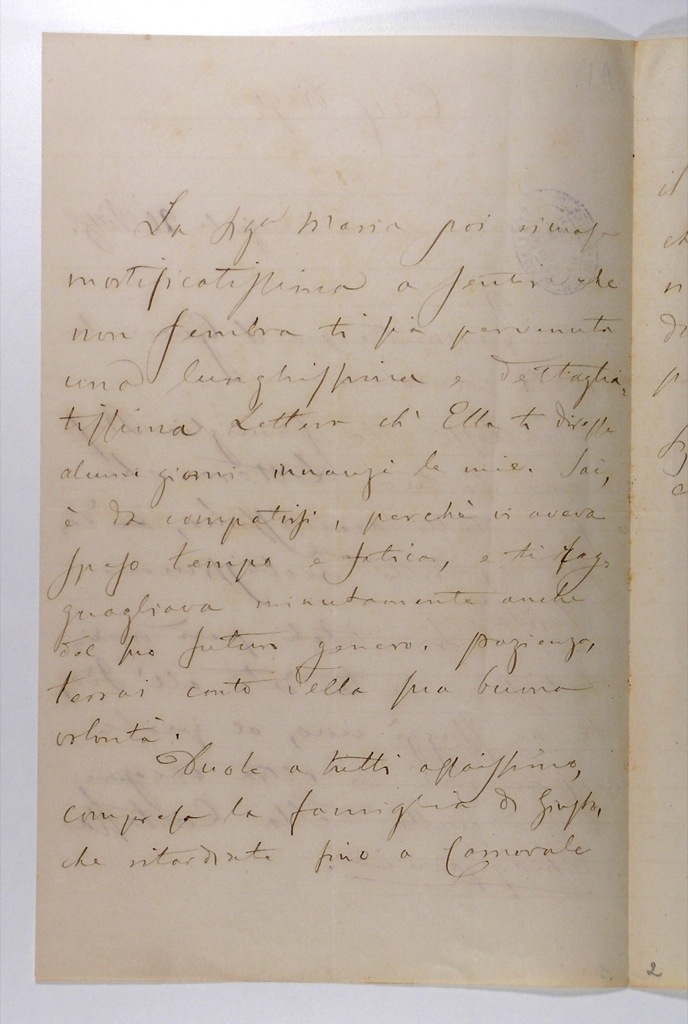 La Sig.ª Maria poi rimase
mortificatissima a sentire che
non sembra ti sia pervenuta
una lunghissima e dettaglia-
tissima Lettera ch' Ella ti diresse
alcuni giorni innanzi le mie. Sai,
è da compatirsi, perchè vi aveva
speso tempo e fatica, e ti rag-
guagliava minutamente anche
del suo futuro genero. Pazienza,
terrai conto della sua buona
volontà.
Duole a tutti assaissimo,
compresa la famiglia di
che ritardiate fino a Carnovale
il
ch
n
di
p
2